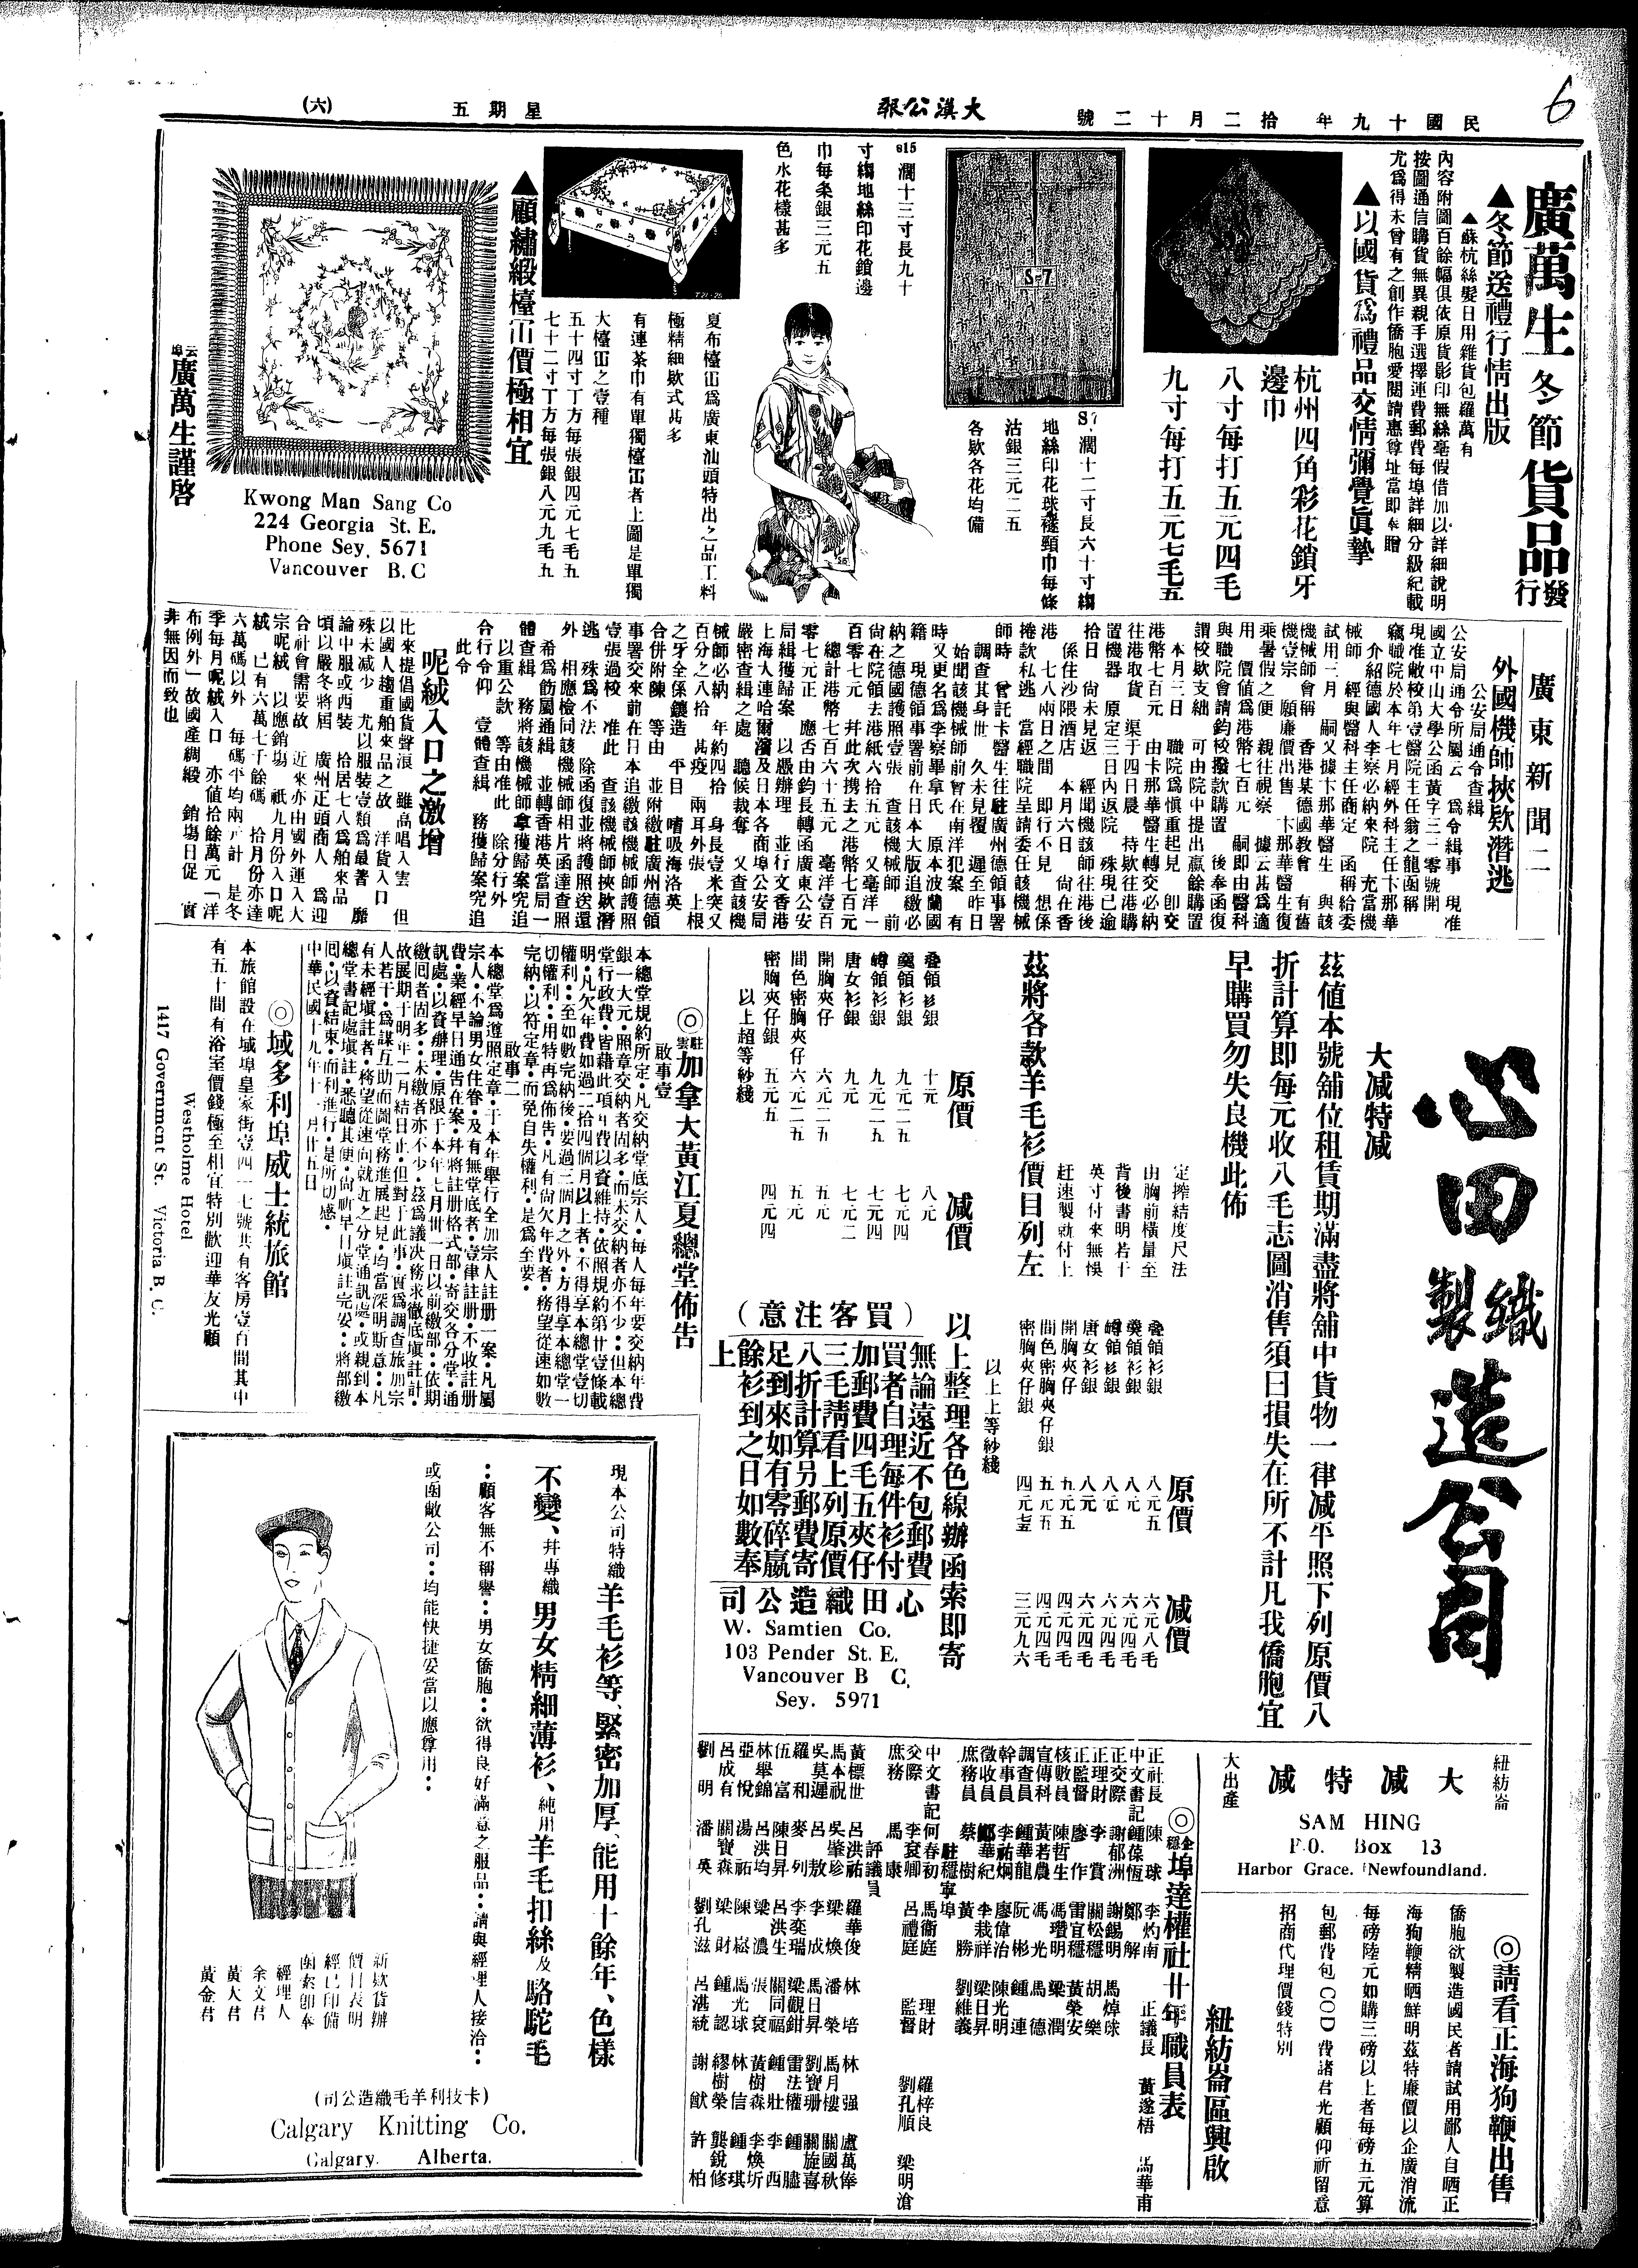 民國十九年 拾二月十二號
大漢公報
星期五
(六)
6
廣萬生冬節貨品發行
▲冬節送禮行情出版
▲蘇杭絲髮日用雜貨包羅萬有
內容附圖百餘幅俱依原貨影印無絲毫假借加以詳細說明
按圖通信購貨無異親手選擇運費郵費每埠詳細分級紀載
尤爲得未曾有之創作僑胞愛閱請惠尊址當即奉贈
▲以國貨爲禮品交情彌覺眞摯
杭州四角彩花鎖牙
邊巾
八寸每打五元四毛
九寸每打五元七毛五
S-7
S7.濶十二寸長六十寸縐
地絲印花球襚頸巾每條
沽銀三元二五
各欵各花均備
S15 濶十三寸長九十
寸縐地絲印花鎖邊
巾每条銀三元五
色水花樣甚多
夏布檯冚爲廣東汕頭特出之品工料
極精細欵式甚多
有連茶巾有單獨檯冚者上圖是單獨
大檯冚之壹種
五十四寸丁方每張銀四元七毛五
七十二寸丁方每張銀八元九毛五
▲顧繡緞檯冚價極相宜
云埠廣萬生謹啓
Kwong Man Sang Co
224 Georgia St. E.
Phone Sey. 5671
Vancouver B. C
廣東新聞二
外國機師挾欵潛逃
公安局通令查緝
公安局通令所屬云 爲令緝事 現准
國立中山大學公函黃字三一零號開
現准敝校第壹醫院主任翁之龍函稱
竊職院於本年七月經外科主任卞那華
介紹德國人李察必納來院 充當機
械師 經與醫科主任商定 函稱給委
試用三月 嗣又據卞那華醫生 與該
機械師會稱 香港某德國教會 有舊
機壹宗 願廉價出售 卞那華醫生復
乘暑假之便 親往視察 據云甚爲適
用 價値爲港幣七百元 嗣即由醫科
與職院會請鈞校撥款購置 後奉函復
謂校欵支絀 可由院中提出贏餘購置
本月三日 職院爲愼重起見 卽交
港幣七百元 由卡那華醫生轉交必納
往港取貨 渠于四日晨 持欵往港購
置機器 原定三日內返院 殊現已逾
拾日 尙未見返 經聞機該師往港後
係住沙隈酒店 本月六日 尙在香
港 七八兩日之間 即行不見 想係
捲款私逃 當經職院呈請委任該機械
師時 曾託卡醫生往駐廣州德領事署
調查其身世 久未見覆 遲至昨日
始聞該機械師前曾在南洋犯案 有
時又更名爲李察畢拿氏 原本波蘭國
籍 現德領事署前在日本大版追繳必
納之德國護照壹張 查該機械師 前
尙在院領去港紙六拾五元 又毫洋一
百零七元 幷此次携去之港幣七百元
總計港幣七百六十五元 毫洋壹百
零七元正 應否由鈞長轉函廣東公安
局緝獲歸案 以憑辦理 並行文香港
上海大連哈爾濱及日本各商埠公安局
嚴密查緝之處 聽候裁奪 又查該機
械師必納 年約四拾 身長壹米突又
百分之八拾 甚疫 兩耳外張 上根
之牙全係鑲造 平日 嗜吸海洛英
合併附陳 等由 並附繳駐廣州德領
事署交來前在日本追繳該機械師護照
壹張過校 准此 查該機械師挾欵潛
逃 殊爲不法 除函復並將護照送還
外 相應檢同該機械師相片函達查照
希爲飭屬通緝 並轉香港英當局一
體查緝 務將該機械師拿獲歸案究追
以重公欵 等由准此 除分行外
合行令仰 壹體查緝 務獲歸案究追
此令
呢絨入口之激增
比來提倡國貨聲浪 雖高唱入雲 但
以國人趨重舶來品之故 洋貨入口
殊未减少 尤以服裝壹類爲最著 廳
論中服或西裝 拾居七八爲舶來品
頃以嚴冬將屆 廣州正頭商人 爲迎
合社會需要故 近來亦由國外運入大
宗呢絨 以應銷場 祇九月份入口呢
絨 已有六萬七千餘碼 拾月份亦達
六萬碼以外 每碼平均兩元計 是冬
季每月呢絨入口 亦値拾餘萬元「洋
布例外」故國產綢緞 銷塲日促 實
非無因而致也
心田織製造公司
大减特减
茲值本號舖位租賃期滿盡將舖中貨物一律减平照下列原價八
折計算即每元收八毛志圖消售須日損失在所不計凡我僑胞宜
早購買勿失良機此佈
定搾結度尺法
由胸前橫量至
背後書明若干
英寸付來無悞
赶速製就付上
茲將各款羊毛衫價目列左
原價 减價
叠領衫銀 十元 八元
龑領衫銀 九元二五 七元四
罇領衫銀 九元二五 七元四
唐女衫銀 九元 七元二
開胸夾仔 六元二五 五元
間色密胸夾仔 六元二五 五元
密胸夾仔銀 五元五 四元四
以上超等紗綫
原價 减價
叠領衫銀 八元五 六元八毛
龑領衫銀 八元 六元四毛
罇領衫銀 八元 六元四毛
唐女衫銀 八元 六元四毛
開胸夾仔 五元五 四元四毛
間色密胸夾仔銀 五元五 四元四毛
密胸夾仔銀 四元壹 三元九六
以上上等紗綫
以上整理各色線辦函索即寄
(買客注意)
無論遠近不包郵費
買者自理每件衫付
加郵費四毛五夾仔
三毛請看上列原價
八折計算另郵費寄
足到來如有零碎贏
餘衫到之日如數奉
上
心田織造公司
W. Samtien Co.
103 Pender St. E.
Vancouver B C.
Sey. 5971
◎駐雲加拿大黃江夏總堂佈告
啟事壹
本總堂規約所定·凡交納堂底宗人·每人每年要交納年費
銀一大元·照章交納者固多·而未交納者亦不少··但本總
堂行政費·皆藉此項年費以資維持·依照規約第卅壹條載
明·凡欠年費如過二拾四個月以上者·不得享本總堂壹切
權利·至如數完納後·要過三個月之外·方得享本總堂一
切權利··用特再爲佈告·凡有尙欠年費者·務望從速如數
完納·以符定章·而免自失權利·是爲至要·
啟事二
本總堂爲遵照定章·于本年舉行全加宗人註册一案·凡屬
宗人·不論男女住眷·及有無堂底者·壹律註册·不收註册
費·業經早日通告在案·幷將註册格式部·寄交各分堂·通
訊處·以資辦理·原限于本年七月卅一日以前繳部··依期
繳囘者固多··未繳者亦不少·茲爲議决務求徹底塡註計·
故展期于明年二月結日止·但對于此事·實爲調查旅加宗
人若干·爲謀互助而圖堂務進展起見·均當深明斯意··凡
有未經塡註者·務望從速向就近之分堂通訊處·或親到本
總堂書記處塡註·悉聽其便·尙祈早日塡註完妥··將部繳
囘·以資結束·而利進行·是所切感·
中華民國十九年十一月廿五日
◎域多利埠威士統旅館
本旅館設在域埠皇家街壹四一七號共有客房壹百間其中
有五十間有浴室價錢極至相宜特別歡迎華友光顧
Westholme Hotel
1417 Government St. Victoria B. C.
現本公司特織羊毛衫等、緊密加厚、能用十餘年、色樣
不變、幷專織男女精細薄衫、純用羊毛扣絲及駱駝毛
··顧客無不稱譽··男女僑胞··欲得良好滿意之服品··請與經理人接洽··
或函敝公司··均能快捷妥當以應尊用··
新欵貨辦
價目表明
經已印備
函索即奉
經理人
余文君
黃大君
黃金君
(卡技利羊毛織造公司)
Calgary Knitting Co.
Calgary. Alberta.
紐芳崙
大减特减
大出產
SAM HING
P.O. Box 13
Harbor Grace. Newfoundland.
◎請看正海狗鞭出售
僑胞欲製造國民者請試用鄙人自晒正
海狗鞭精晒鮮明茲特廉價以企廣消流
每磅陸元如購三磅以上者每磅五元算
包郵費包COD費諸君光顧仰祈留意
招商代理價錢特別
紐芳崙區興啟
◎企穩埠達權社廿年職員表
正社長 陳球 李灼南
正議長 黃遂梧 馬華甫
中文書記 鍾葆恆 鄭解
正交際 謝郁洲 謝錫明 馬焯球
正理財 李賞 關松穩 胡樂
正監督 廖作 雷宜穩 黃榮安
核數員 陳哲生 馮瓚明 梁潤
宣傳科 黃若農 馮光 馬德
調查員 鍾華龍 阮彬 鍾連
幹事員 李祐炯 廖偉治 陳光明
徵收員 鄭華紀 李栽祥 梁日昇
庶務員 蔡樹 黃勝 劉維義
駐穩寧埠
中文書記 何春初 馬衞庭 理財 羅梓良
交際 李袞卿 呂禮庭 監督 劉孔順 梁明滄
庶務 馬康
評議員
黃標世 呂洪祐 羅華俊 林培 林强 盧萬俸
馬本祝 吳肇珍 梁煥 潘榮 馬月樓 關國秋
吳莫遲 呂敖 李成 馬日昇 劉寶珊 關旋喜
羅和 麥列 李奕瑞 梁觀鉗 雷法權 鍾牆
伍富 陳日昇 呂洪生 關同福 鍾壯 李西
林舉錦 呂洪均 梁濃 張袞 黃樹森 李煥圻
亞悅 湯祐 陳崧 馬光球 林信 鍾琪
呂成有 關寶森 梁財 鍾認 繆樹榮 龔銳修
劉明 潘英 劉孔滋 呂湛統 謝猷 許柏